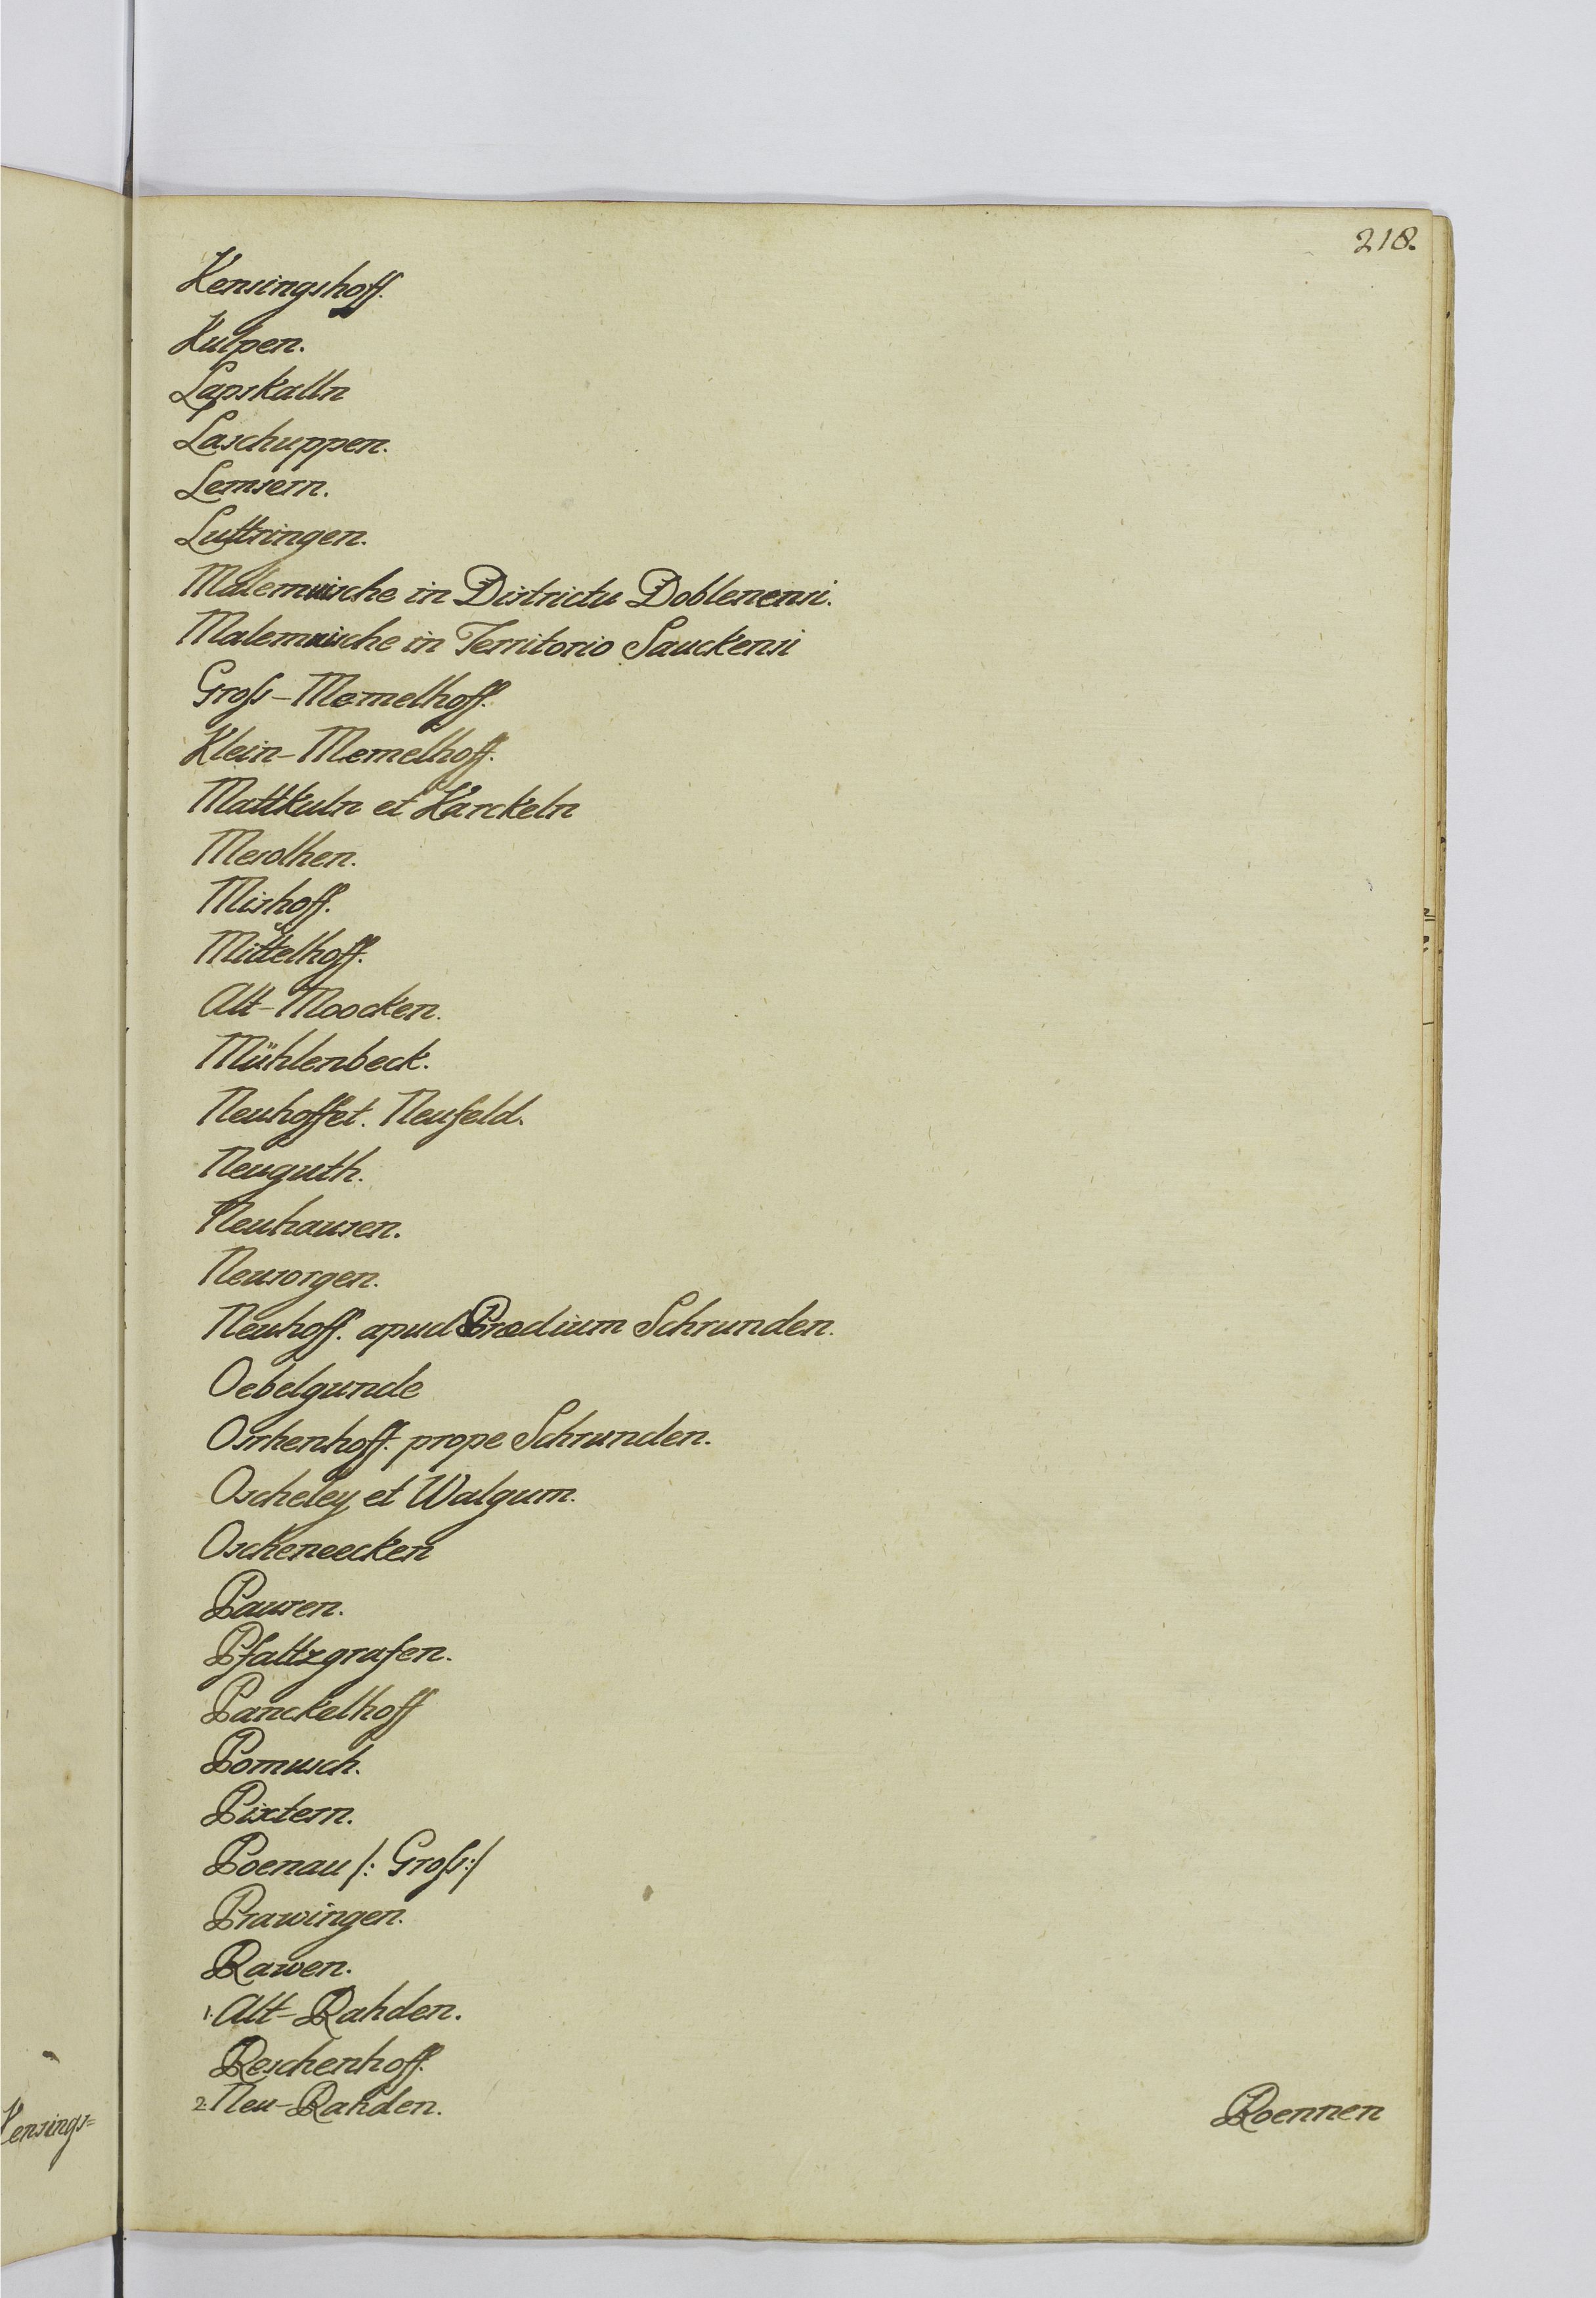 218.
Kensingshoff.
Kulpen.
Lapskalln
Laschuppen.
Lemsern.
Luttringen.
Malemuische in Districtu Doblenensi.
Malemuische in Territorio Sauckensi
Groß-Memelhoff.
Klein-Memelhoff.
Mattkuln et Karckeln
Mesolhen.
Mishoff.
Mittelhoff.
Alt-Moocken.
Mühlenbeck.
Neuhoff et. Neufeld.
Neuguth.
Neuhausen.
Neusorgen.
Neuhoff. apud Prædium Schrunden.
Oebelgunde
Osrhenhoff. prope Schrunden.
Oscheley et Walgum.
Oscheneecken
Pausen.
Pfaltzgrafen.
Panckelhoff
Pomusch.
Pixtern.
Poenau /: Groß:/
Prawingen.
Rawen.
1. Alt-Rahden.
Reschenhoff.
2. Neu-Rahden.
Roennen
Kensings=